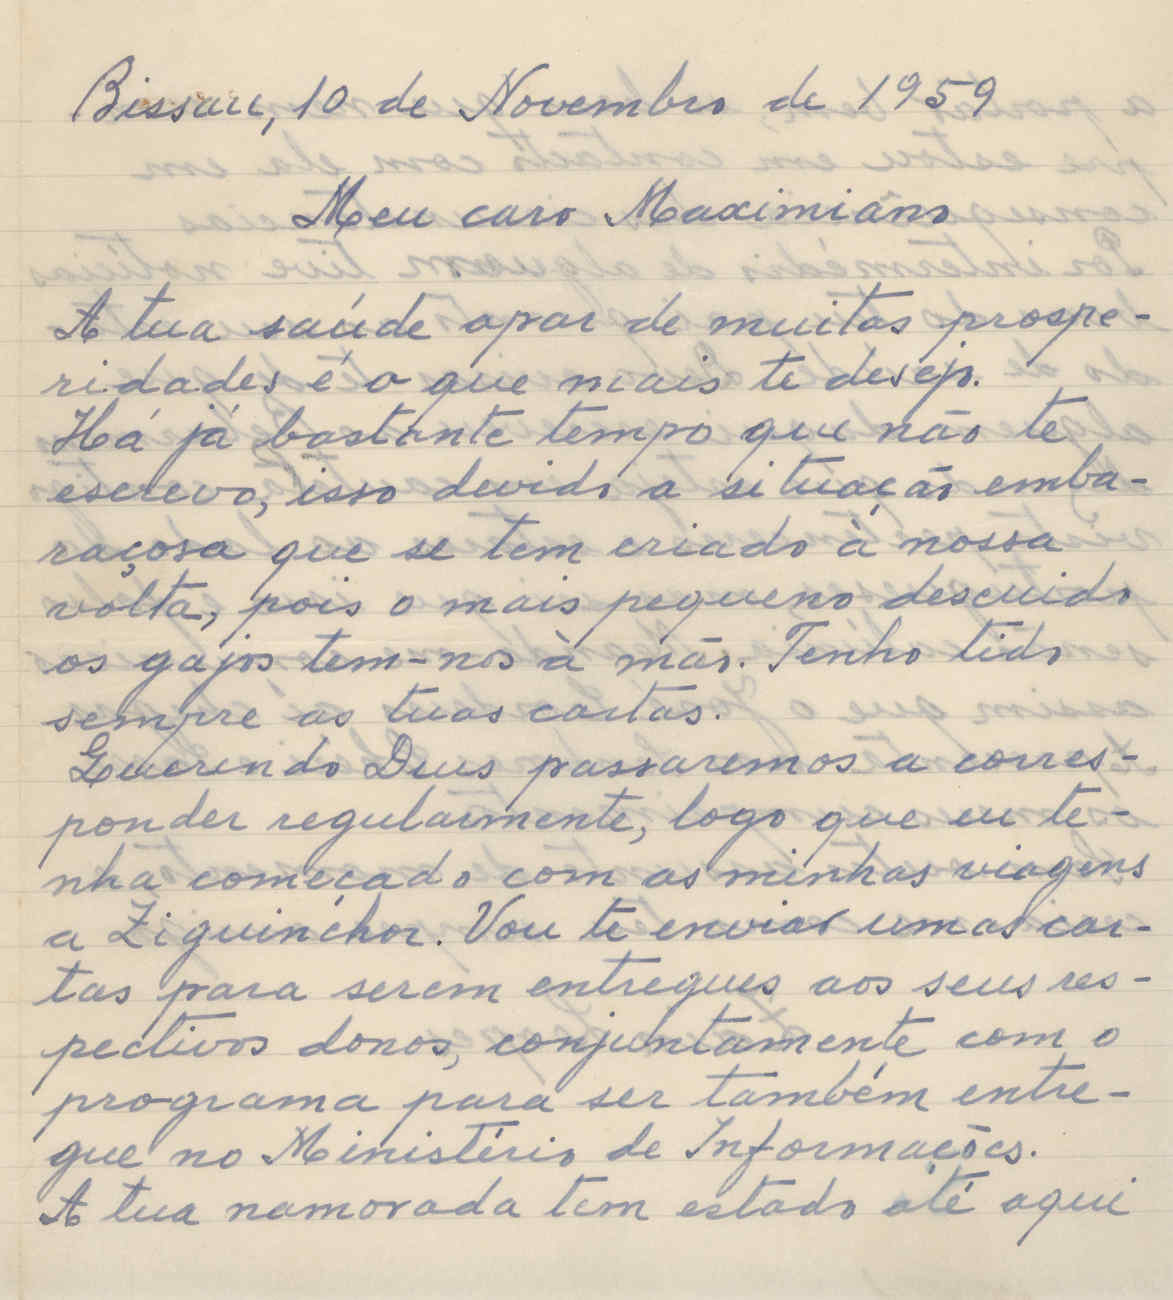 Bissau, 10 de Novembro de 1959
Meu caro Maximiano
A tua saúde apar de muitas prospe-
ridades é o que mais te desejo.
Há já bastante tempo que não te
escrevo, isso devido a situação emba-
raçosa que se tem criado à nossa
volta, pois o mais pequeno descuido
os gajos tem-nos à mão. Tenho tido
sempre as tuas cartas.
Querendo Deus passaremos a corres-
ponder regularmente, logo que eu te-
nha começado com as minhas viagens
a Ziguinchor. Vou te enviar umas car-
tas para serem entregues aos seus res-
pectivos donos, conjuntamente com o
programa para ser também entre-
gue no Ministério de Informações.
A tua namorada tem estado até aqui